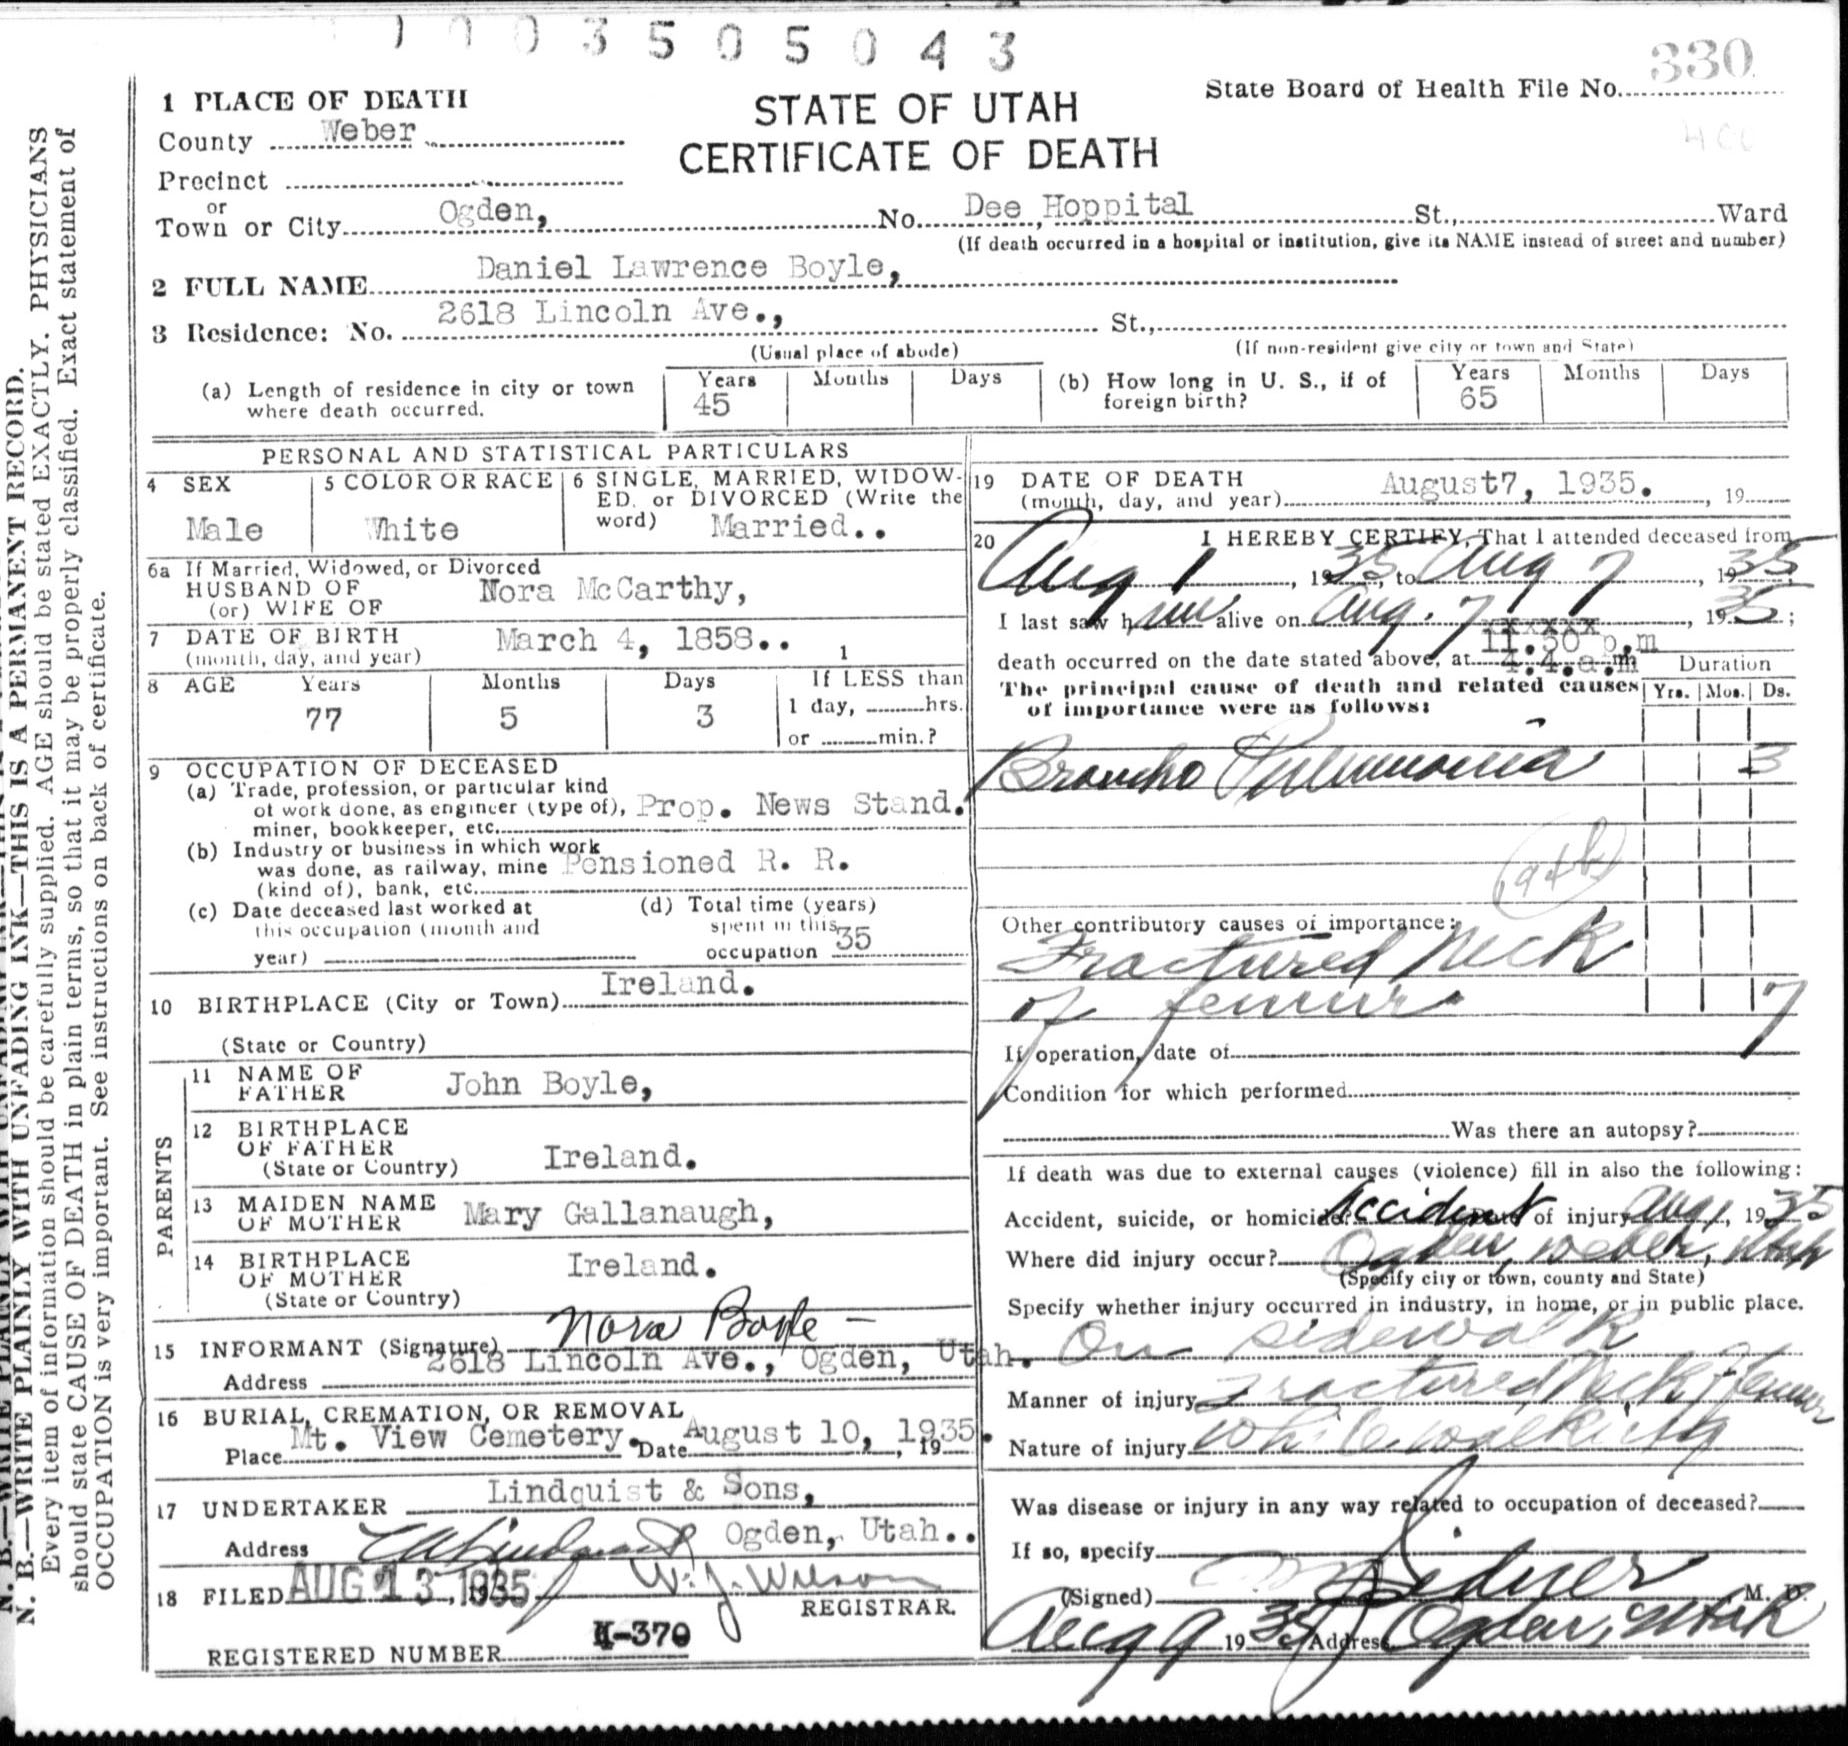 1003505043
330
State Board of Health File No.
STATE OF UTAH
CERTIFICATE OF DEATH
1 PLACE OF DEATH
County Weber
Precinct
or
Town or City Ogden, No. Dee Hoppital St., Ward
(If death occurred in a hospital or institution, give its NAME instead of street and number)
2 FULL NAME Daniel Lawrence Boyle,
3 Residence: No. 2618 Lincoln Ave., St.,
(Usual place of abode) (If non-resident give city or town and State)
(a) Length of residence in city or town where death occurred. Years 45 Months Days
(b) How long in U. S., if of foreign birth? Years 65 Months Days
PERSONAL AND STATISTICAL PARTICULARS
4 SEX Male
5 COLOR OR RACE White
6 SINGLE, MARRIED, WIDOW-
ED, or DIVORCED (Write the
word) Married..
6a If Married, Widowed, or Divorced
HUSBAND OF
(or) WIFE OF Nora McCarthy,
7 DATE OF BIRTH
(month, day, and year) March 4, 1858.. 1
8 AGE Years 77 Months 5 Days 3 If LESS than
1 day, hrs.
or min.?
9 OCCUPATION OF DECEASED
(a) Trade, profession, or particular kind
of work done, as engineer (type of), Prop. News Stand.
miner, bookkeeper, etc.
(b) Industry or business in which work
was done, as railway, mine Pensioned R. R.
(kind of), bank, etc.
(c) Date deceased last worked at
this occupation (month and
year)
(d) Total time (years)
spent in this
occupation 35
10 BIRTHPLACE (City or Town) Ireland.
(State or Country)
PARENTS
11 NAME OF
FATHER John Boyle,
12 BIRTHPLACE
OF FATHER
(State or Country) Ireland.
13 MAIDEN NAME
OF MOTHER Mary Gallanaugh,
14 BIRTHPLACE
OF MOTHER
(State or Country) Ireland.
15 INFORMANT (Signature) Nora Boyle
Address 2618 Lincoln Ave., Ogden, Utah.
16 BURIAL, CREMATION, OR REMOVAL
Place Mt. View Cemetery. Date August 10, 1935. , 19
17 UNDERTAKER Lindquist & Sons,
Address Ogden, Utah..
18 FILED AUG 13, 1935 W. J. Wilson
REGISTRAR.
REGISTERED NUMBER I-370
19 DATE OF DEATH
(month, day, and year) August7, 1935. , 19
20 I HEREBY CERTIFY, That I attended deceased from
Aug 1, 1935, to Aug 7, 1935
I last saw him alive on Aug. 7, 1935;
xxxxx
11.50 p.m
death occurred on the date stated above, at 4.4.a.m
Duration
The principal cause of death and related causes
of importance were as follows:
Yrs. Mos. Ds.
Broncho Pneumonia 3
Other contributory causes of importance:
Fractured Neck
of femur 7
If operation, date of
Condition for which performed
Was there an autopsy?
If death was due to external causes (violence) fill in also the following:
Accident, suicide, or homicide? Accident Date of injury Aug 1, 1935
Where did injury occur? Ogden, Weber, Utah
(Specify city or town, county and State)
Specify whether injury occurred in industry, in home, or in public place.
On sidewalk
Manner of injury Fractured Neck of femur
Nature of injury while walking
Was disease or injury in any way related to occupation of deceased?
If so, specify
(Signed) M. D.
Aug 9 1935 Address Ogden, Utah
N. B.—WRITE PLAINLY WITH UNFADING INK—THIS IS A PERMANENT RECORD.
Every item of information should be carefully supplied. AGE should be stated EXACTLY. PHYSICIANS
should state CAUSE OF DEATH in plain terms, so that it may be properly classified. Exact statement of
OCCUPATION is very important. See instructions on back of certificate.